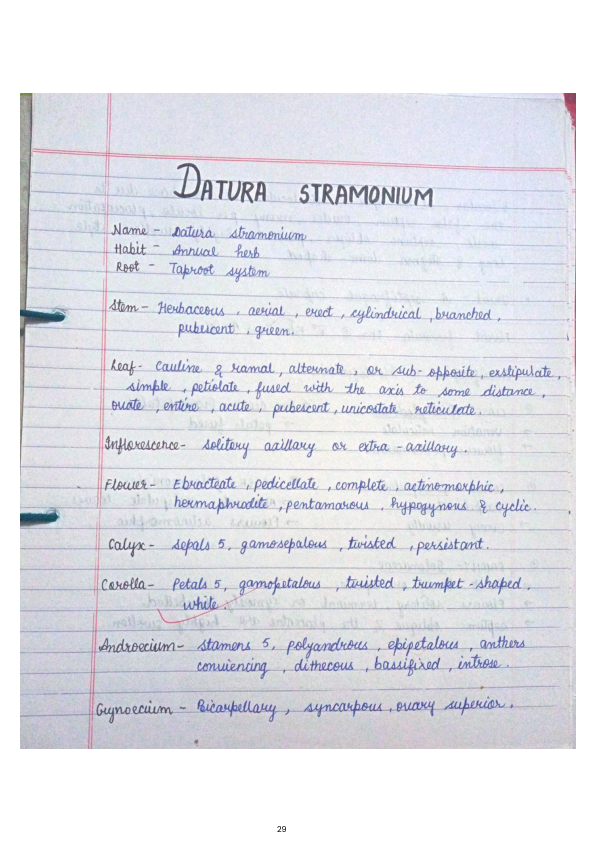 DATURA STRAMONIUM
Name - Datura stramonium
Habit - Annual herb
Root - Taproot system
Stem - Herbaceous , aerial , erect , cylindrical , branched ,
pubescent , green.
Leaf - Cauline & ramal , alternate , or sub-opposite , exstipulate ,
simple , petiolate , fused with the axis to some distance ,
ovate , entire , acute , pubescent , unicostate reticulate .
Inflorescence - solitery axillary or extra-axillary .
Flower - Ebracteate , pedicellate , complete , actinomorphic ,
hermaphrodite , pentamarous , hypogynous & cyclic .
Calyx - sepals 5 , gamosepalous , twisted , persistant .
Corolla - Petals 5 , gamopetalous , twisted , trumpet-shaped ,
white .
Androecium - stamens 5 , polyandrous , epipetalous , anthers
conviencing , dithecous , bassifixed , introse .
Gynoecium - Bicarpellary , syncarpous , ovary superior .
29